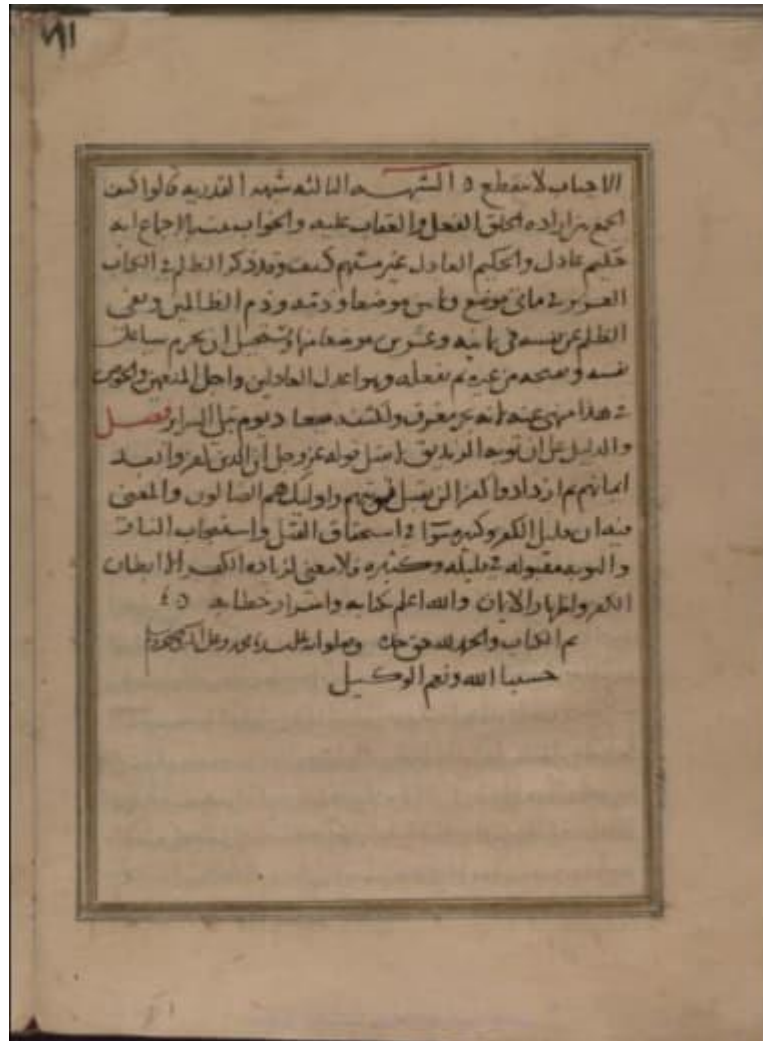 الاجباب لا ينقطع ٥ الشبهه الثالثه شبهه القدريه قالوا كيف
الجمع بين اراده الخلق الفعل والعقاب عليه والجواب الاجماع انه
حكيم عادل والحكيم العادل غير متهم كيف وقد ذكر الظلم في الكتاب
العزيز في مائتى موضع موضعا وذمه وذم الظالمين ونفى
الظلم عن نفسه فى ثمانيه وعشرين موضعا منها ويستحيل ان يحرم شيا على
نفسه من غيره ثم يفعله وهو اعدل العادلين واجل المنعمين والخوض
في هذا منهى عنه لانه غير معروف يوم تبلى السراير فصل
والدليل على ان توبه الزنديق لا تقبل قوله عز وجل ان الذين كفروا بعد
ايمانهم ثم ازدادوا كفرا لن تقبل توبتهم واوليك هم الضالون والمعنى
فيه ان قليل الكفر وكثيره سوا في استحقاق القتل واستيجاب النار
والتوبه مقبوله في قليله وكثيره فلا معنى لزياده الكفر الا ابطان
الكفر واظهار الايمان والله اعلم بكتابه واسرار خطابه
تم الكتاب والحمد لله حق حمده وصلواته على
حسبنا الله ونعم الوكيل